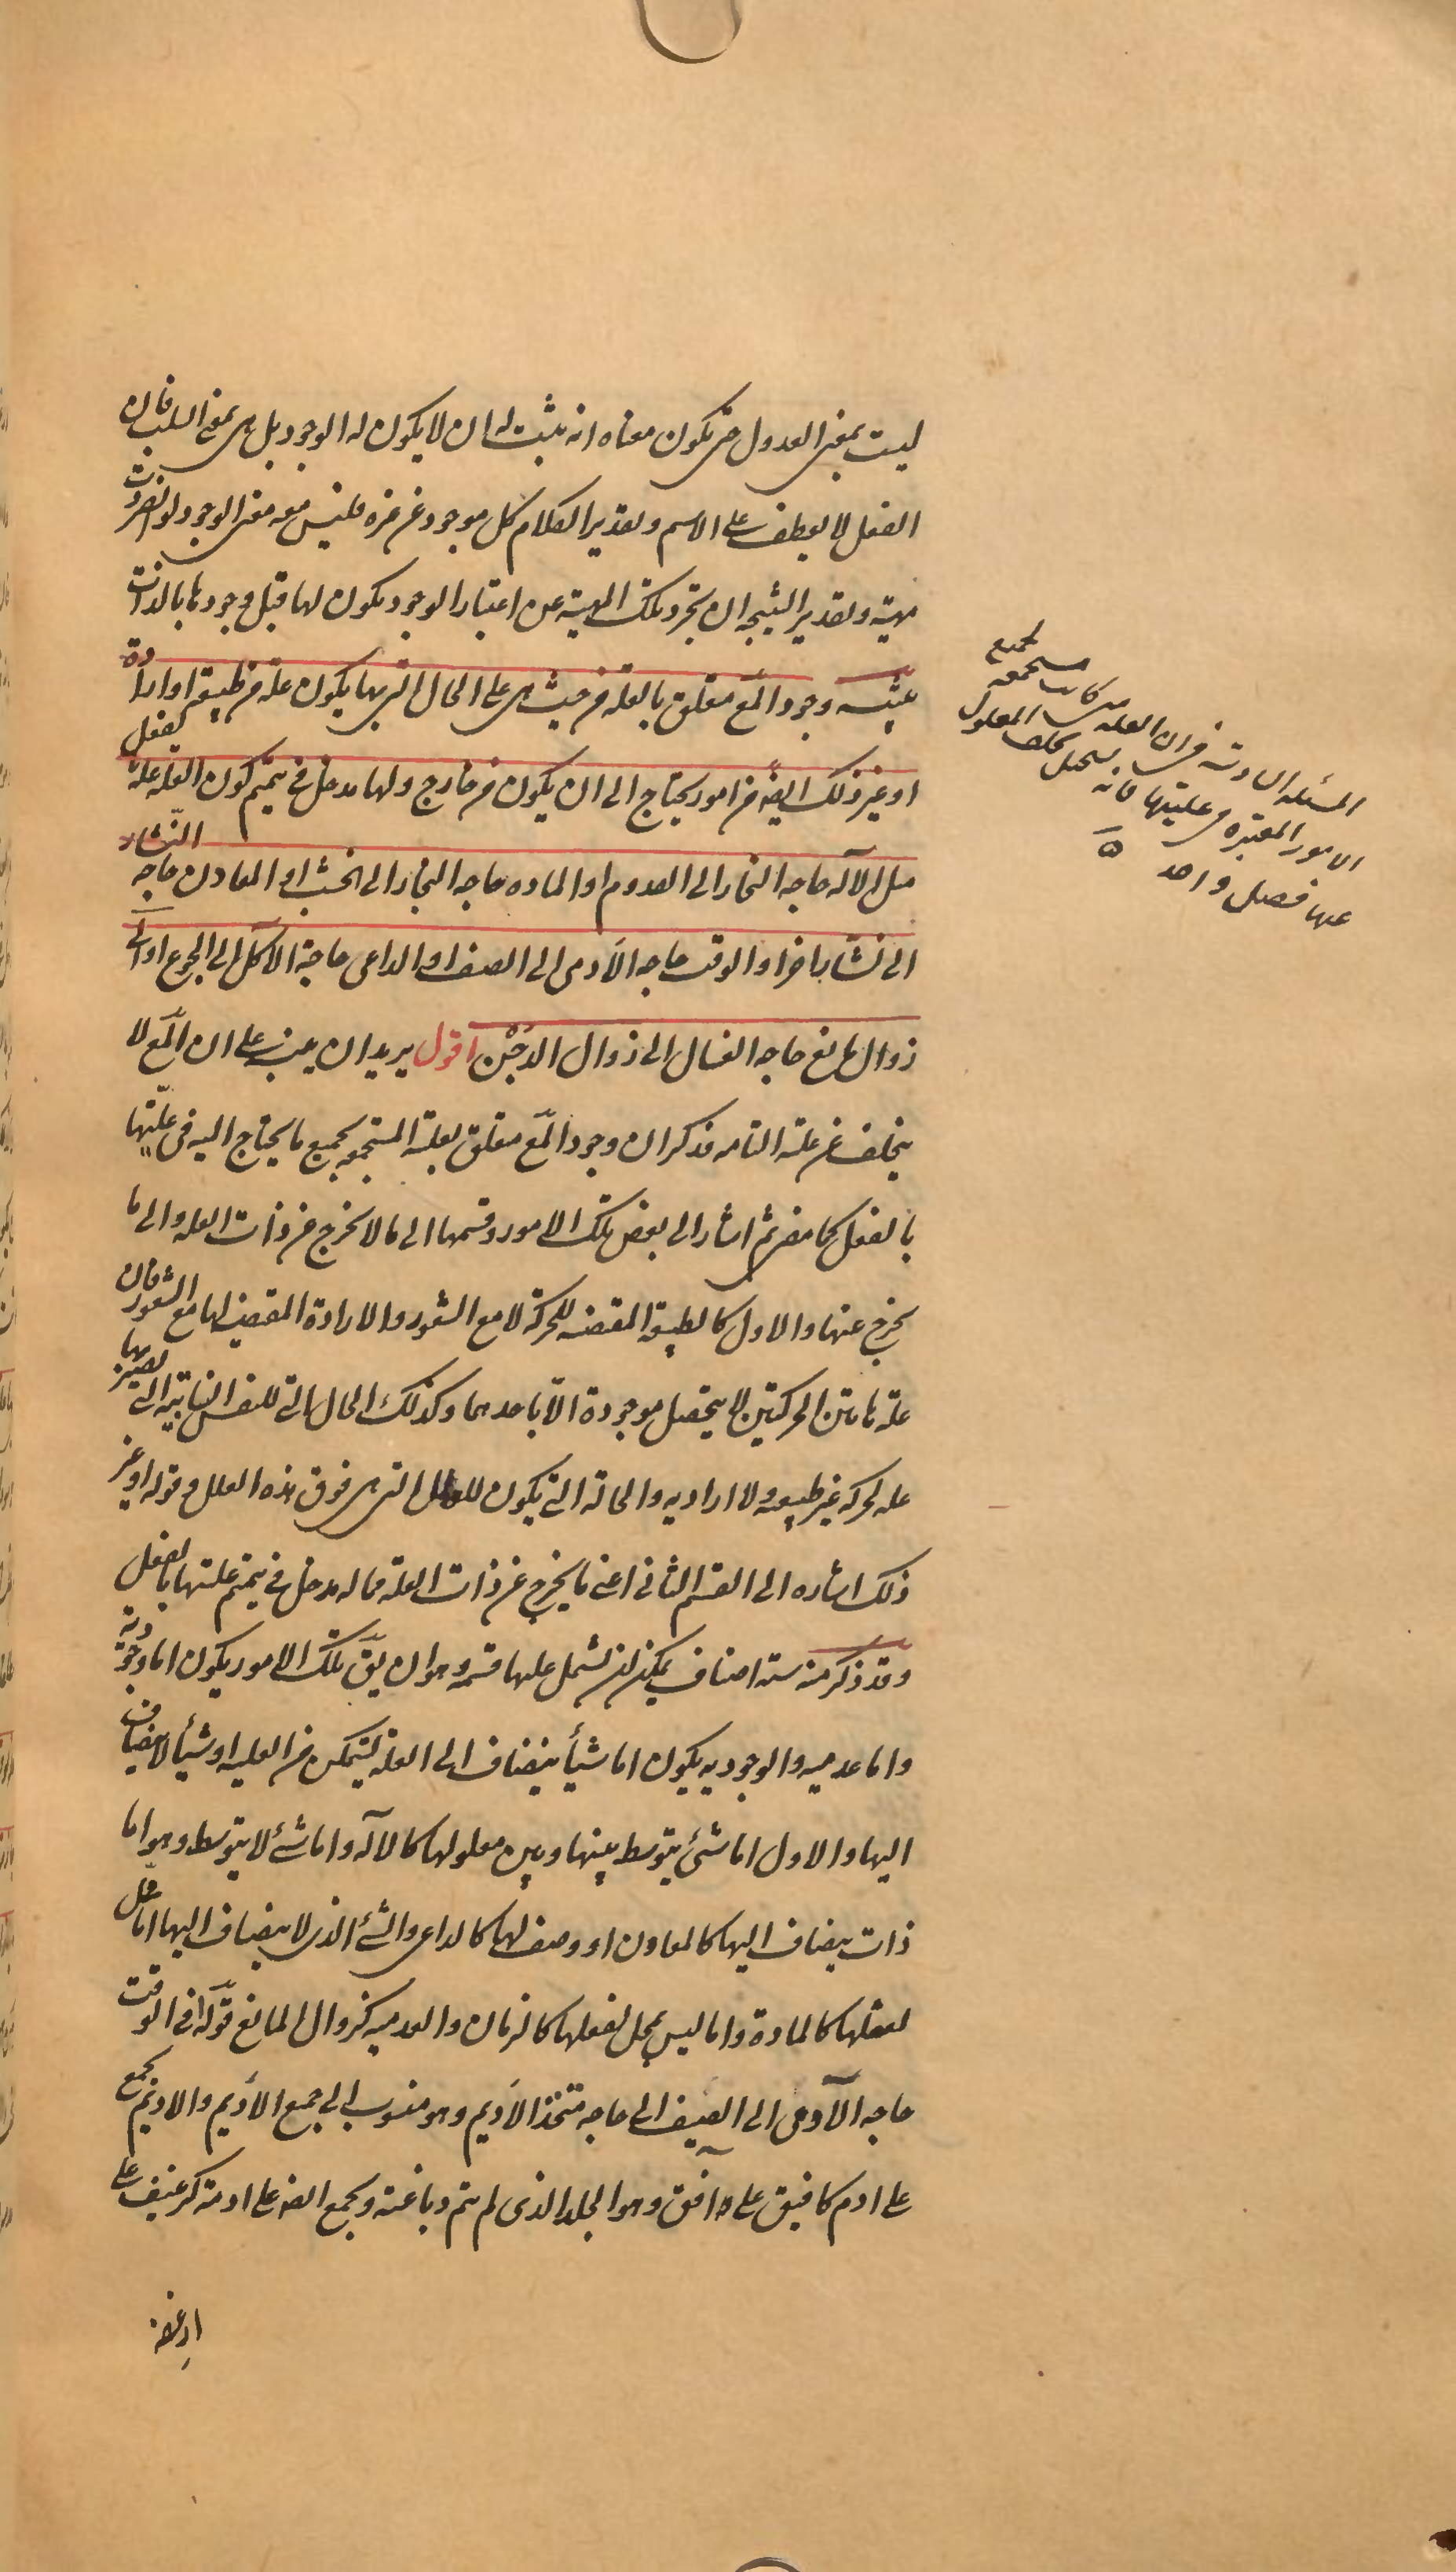 ليست بمعنى العدول حتى يكون معناه انه يثبت له ان لا يكون له الوجود بل هى بمعنى السلب فان
الفعل لا يعطف على الاسم وتقدير الكلام كل موجود عن غيره فليس معه معنى الوجود لو انفردت
مهية وتقدير النتيجه ان تجرد تلك المهية عن اعتبار الوجود يكون لها قبل وجودها بالذات
تنبيه وجود المع متعلق بالعله من حيث هى على الحال التى بها يكون علة من طبيعة او ارادة
او غير ذلك ايضه من امور يحتاج الى ان يكون من خارج ولها مدخل فى تتميم كون العله علة بالفعل
مثل الآله حاجه النجار الى القدوم او الماده حاجه النجار الى الخشب او المعاون حاجه النشار
الى نشار اخر او الوقت حاجه الآدمى الى الصيف او الداعى حاجة الآكل الى الجوع او
زوال مانع حاجه الغسال الى زوال الدجن اقول يريد ان ينبه على ان المع لا
يتخلف عن علته التامه فذكر ان وجود المع متعلق بعلته المستجمعه لجميع ما يحتاج اليه فى عليتها
بالفعل كما مضى ثم اشار الى بعض تلك الامور وقسمها الى ما لا يخرج عن ذات العله والى ما
يخرج عنها والاول كالطبيعة المقتضيه للحركة لا مع الشعور والارادة المقتضيه لها مع الشعور فان
علة هاتين الحركتين لا يتحصل موجودة الا باحدهما وكذلك الحال التى للنفس النباتيه التى بها تصير
عله لحركه غير طبيعيه ولا اراديه والحالة التى يكون للعلل التى هى فوق هذه العلل وقوله او غير
ذلك اشاره الى القسم الثانى اعنى ما يخرج عن ذات العله مما له مدخل فى تتميم عليتها بالفعل
وقد ذكر منه سته اصناف يمكن ان يشمل عليها قسمه وهو ان يق تلك الامور يكون اما وجودية
واما عدميه والوجوديه يكون اما شيأ ينضاف الى العله ليتمكن من العليه او شيأ لا ينضاف
اليها والاول اما شئ يتوسط بينها وبين معلولها كالآله واما شئ لا يتوسط وهو اما
ذات ينضاف اليها كالمعاون او وصف لها كالداعى والشئ الذى لا ينضاف اليها اما محل
لفعلها كالمادة واما ليس بمحل لفعلها كالزمان والعدميه كزوال المانع قوله فى الوقت
حاجه الآدمى الى الصيف اى حاجه متخذ الاديم وهو منسوب الى جمع الاديم والاديم يجمع
على ادم كافيق على افق وهو الجلد الذى لم يتم دباغته ويجمع ايضه على ادمة كرغيف على
ارغفه
المسئله الثالثه فى ان العله متى كانت مستجمعه لجميع
الامور المعتبره فى عليتها فانه يستحيل تخلف المعلول
عنها فصل واحد